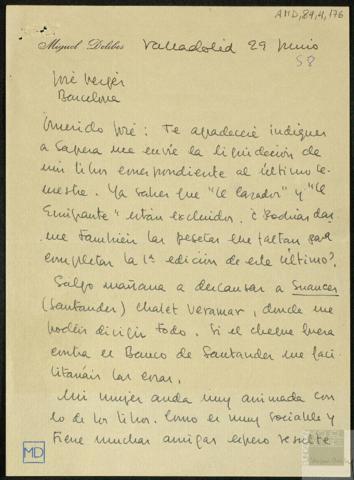 AMD, 89, 4, 176
Miguel Delibes Valladolid 29 junio
58
José Vergés
Barcelona
Querido José: Te agradeceré indiques
a Sapera me envíe la liquidación de
mis libros correspondiente al último se-
mestre. Ya sabes que "El cazador" y "El
Emigrante" están excluidos. ¿Podrías dar-
me también las pesetas que faltan para
completar la 1ª edición de este último?
Salgo mañana a descansar a Suances
(Santander) Chalet Veramar, donde me
podéis dirigir todo. Si el cheque fuera
contra el Banco de Santander me faci-
litaríais las cosas.
Mi mujer anda muy animada con
lo de los libros. Como es muy sociable y
tiene muchas amigas espero resulte
MD